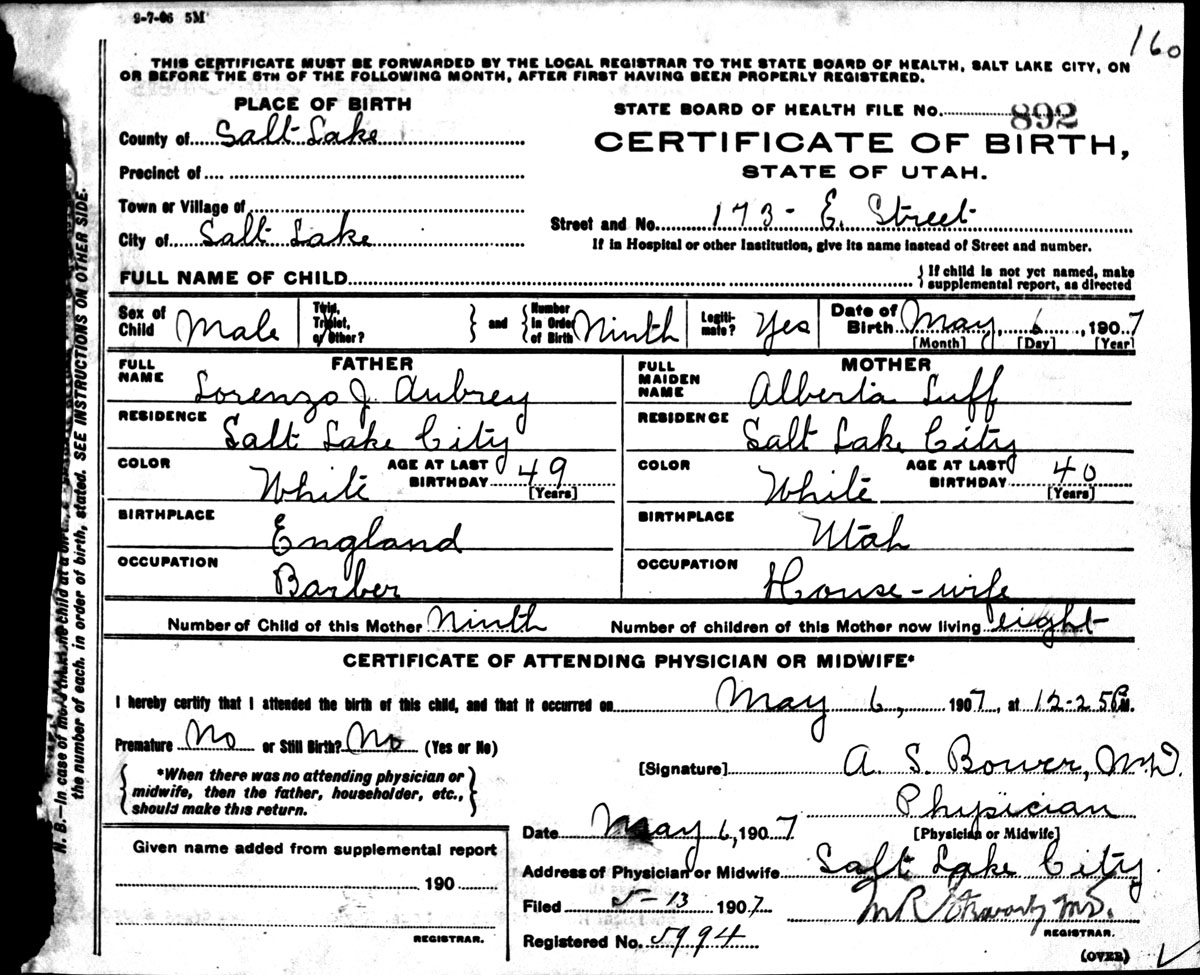 9-7-06 5M
160
THIS CERTIFICATE MUST BE FORWARDED BY THE LOCAL REGISTRAR TO THE STATE BOARD OF HEALTH, SALT LAKE CITY, ON
OR BEFORE THE 5TH OF THE FOLLOWING MONTH, AFTER FIRST HAVING BEEN PROPERLY REGISTERED.
PLACE OF BIRTH
STATE BOARD OF HEALTH FILE No. 892
County of Salt Lake
CERTIFICATE OF BIRTH,
STATE OF UTAH.
Precinct of
Town or Village of
Street and No. 173 - E. Street
City of Salt Lake
If in Hospital or other Institution, give its name instead of Street and number.
FULL NAME OF CHILD
If child is not yet named, make
supplemental report, as directed
Sex of Child Male
Twin, Triplet, or Other?
and
Number in Order of Birth Ninth
Legitimate? Yes
Date of Birth May 6, 1907
[Month] [Day] [Year]
FATHER
FULL NAME Lorenzo J. Aubrey
RESIDENCE Salt Lake City
COLOR White
AGE AT LAST BIRTHDAY 49
[Years]
BIRTHPLACE England
OCCUPATION Barber
MOTHER
FULL MAIDEN NAME Alberta Luff
RESIDENCE Salt Lake City
COLOR White
AGE AT LAST BIRTHDAY 40
[Years]
BIRTHPLACE Utah
OCCUPATION House-wife
Number of Child of this Mother Ninth
Number of children of this Mother now living eight
CERTIFICATE OF ATTENDING PHYSICIAN OR MIDWIFE*
I hereby certify that I attended the birth of this child, and that it occurred on May 6, 1907, at 12-25 P.M.
Premature No or Still Birth? No (Yes or No)
*When there was no attending physician or
midwife, then the father, householder, etc.,
should make this return.
[Signature] A. S. Bower, M.D.
Physician
[Physician or Midwife]
Date May 6, 1907
Address of Physician or Midwife Salt Lake City
Given name added from supplemental report
190
REGISTRAR.
Filed 5-13 1907
M R M.D.
REGISTRAR.
Registered No. 5994
(OVER)
N. B.—In case of more than one child at a birth,
the number of each, in order of birth, stated. SEE INSTRUCTIONS ON OTHER SIDE.